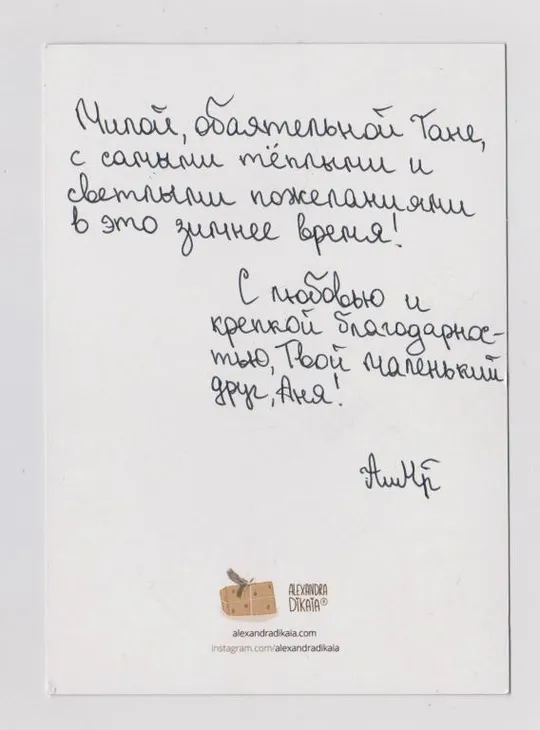 Милой, обаятельной Тане,
с самыми тёплыми и
светлыми пожеланиями
в это зимнее время!
С любовью и
крепкой благодарнос-
тью, Твой маленький
друг, Аня!
ALEXANDRA
DIKAIA®
alexandradikaia.com
instagram.com/alexandradikaia